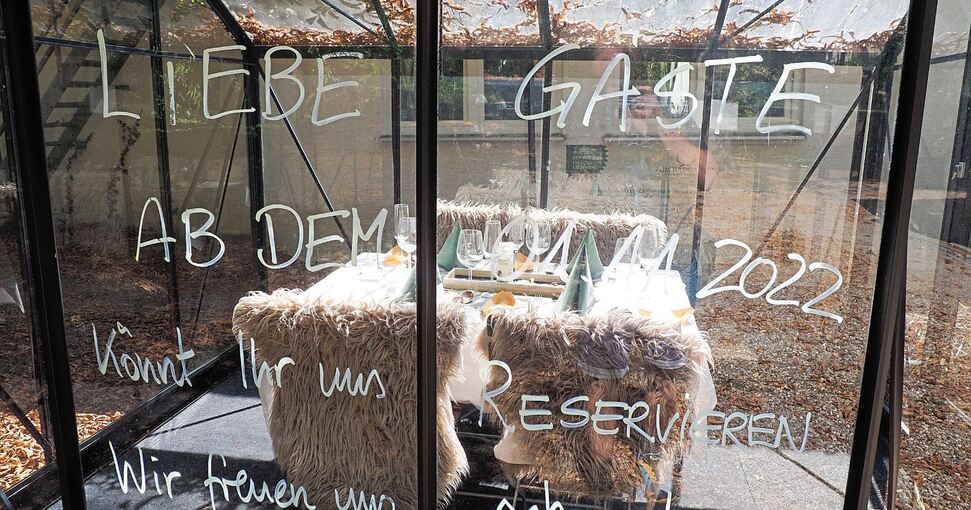 LIEBE GÄSTE
AB DEM 01.11.2022
Könnt Ihr uns RESERVIEREN
Wir freuen uns